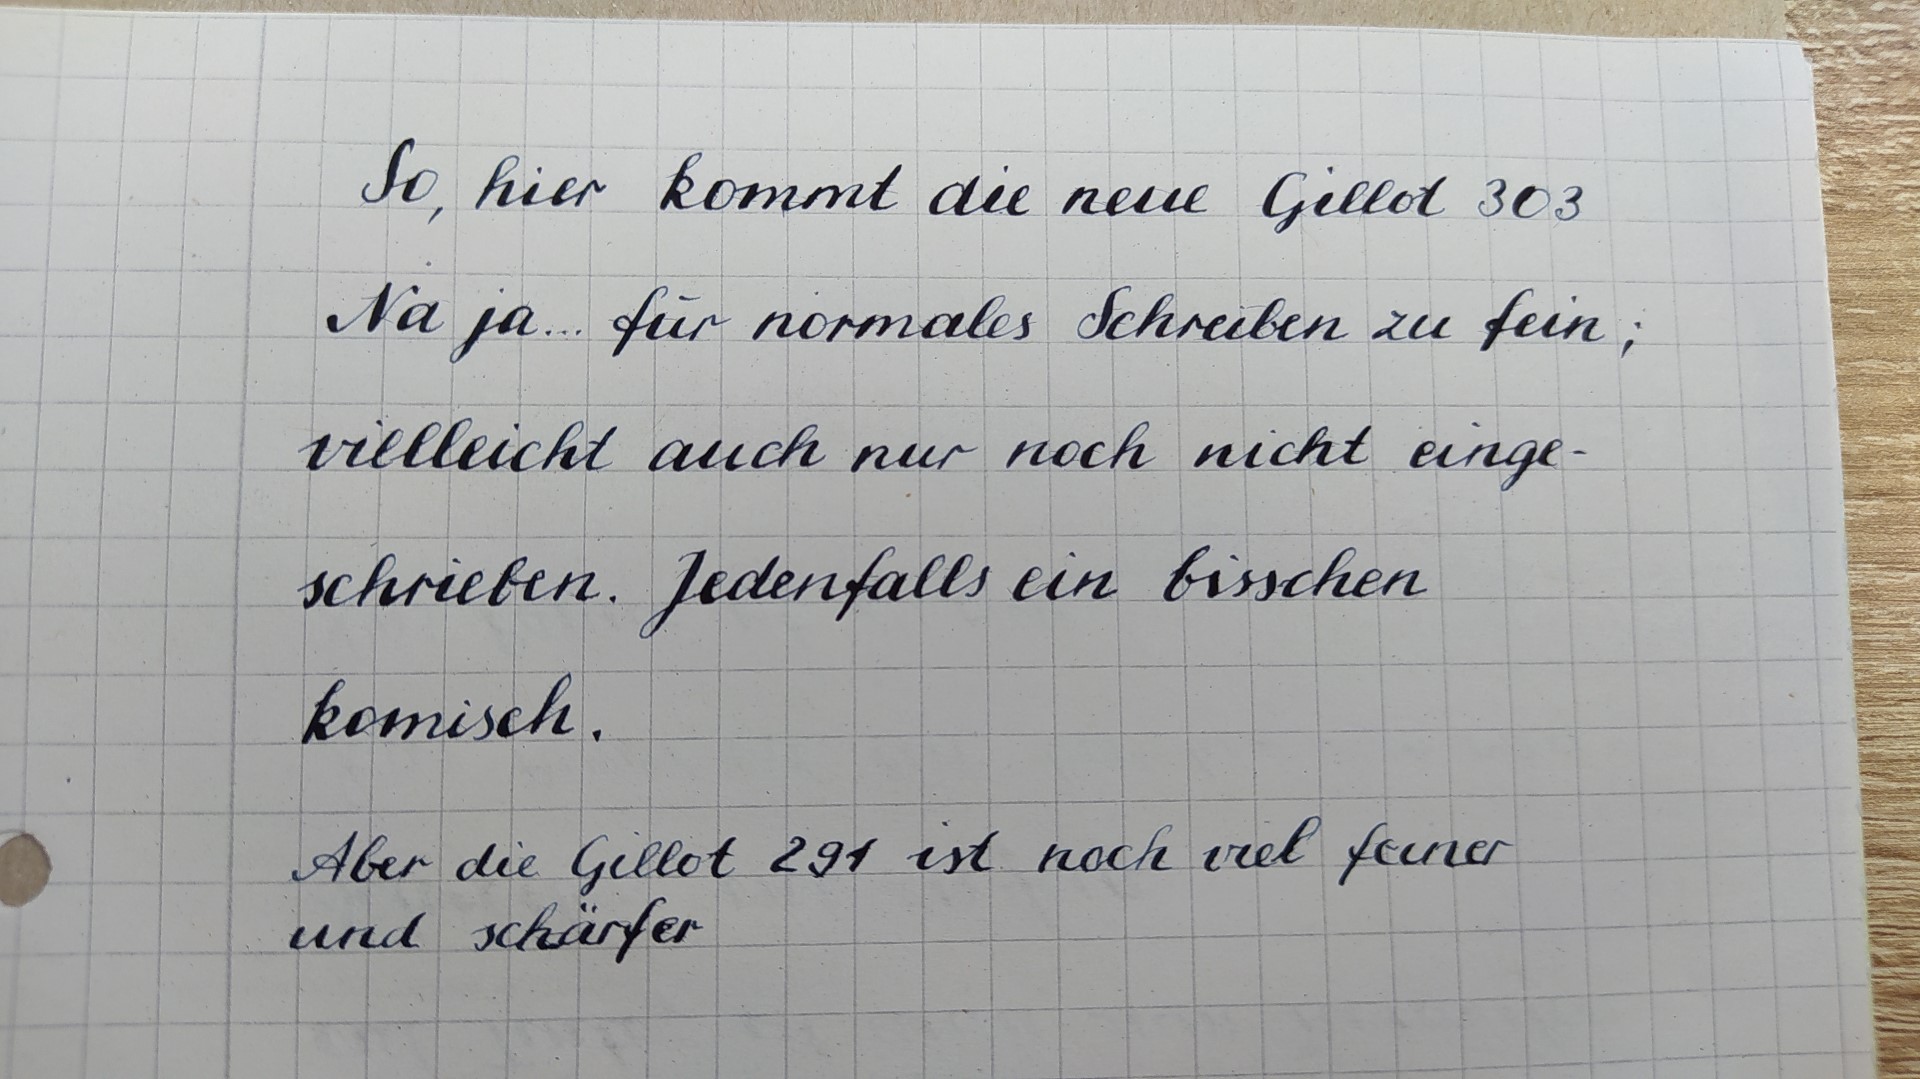 So, hier kommt die neue Gillot 303
Na ja... für normales Schreiben zu fein;
vielleicht auch nur noch nicht einge-
schrieben. Jedenfalls ein bisschen
komisch.
Aber die Gillot 291 ist noch viel feiner
und schärfer